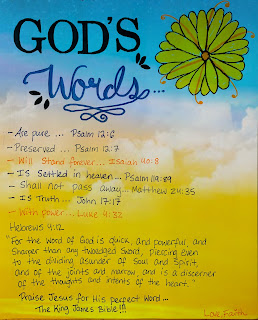 GOD'S
Words...
- Are pure ... Psalm 12:6
- Preserved ... Psalm 12:7
- Will Stand forever... Isaiah 40:8
- Is Settled in heaven... Psalm 119:89
- Shall not pass away... Matthew 24:35
- Is Truth... John 17:17
- With power... Luke 4:32
Hebrews 4:12
"For the word of God is quick, and powerful, and
Sharper than any twoedged Sword, piercing even
to the dividing asunder of Soul and Spirit,
and of the joints and marrow and is a discerner
of the thoughts and intents of the heart."
Praise Jesus for His perfect Word...
-The King James Bible!!!
Love, Faith